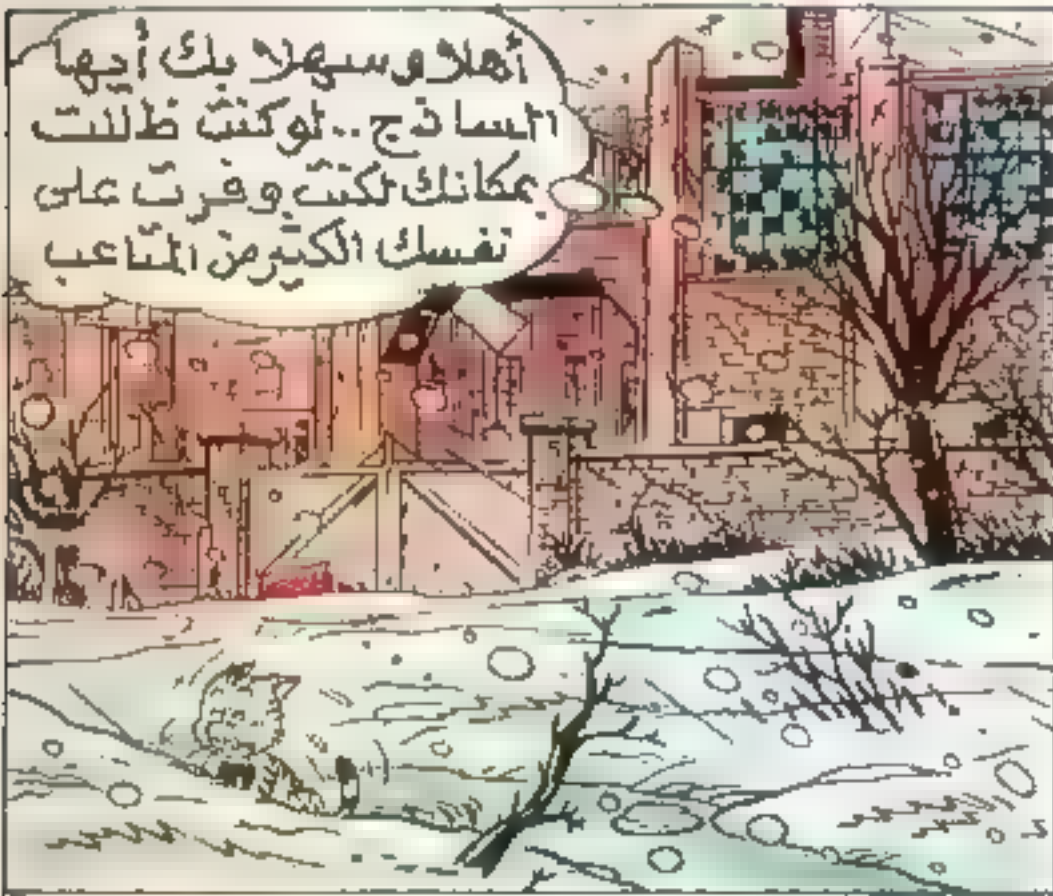 أهلا وسهلا بك أيها
الساذج.. لوكنت ظللت
بمكانك لكنت وفرت على
نفسك الكثير من المتاعب